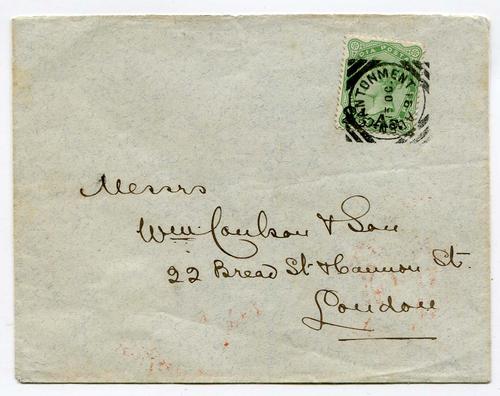 DIA POST
CANTONMENT
OC
A
Messrs
Wm Coulson & Son
22 Bread St & Cannon St.
London